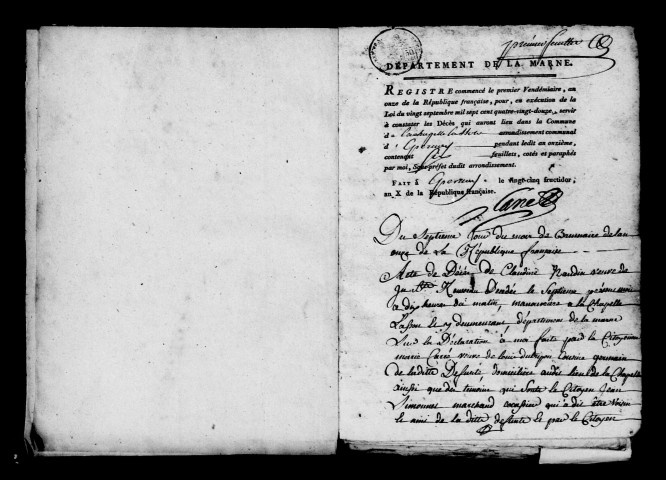 premier feuillet
DÉPARTEMENT DE LA MARNE.
REGISTRE commencé le premier Vendémiaire, an
onze de la République française, pour, en exécution de la
Loi du vingt septembre mil sept cent quatre-vingt-douze, servir
à constater les Décès qui auront lieu dans la Commune
d arrondissement communal
d' Epernay pendant ledit an onzième,
contenant Six feuillets, cotés et paraphés
par moi, Sous-préfet dudit arrondissement.
FAIT à Epernay le vingt-cinq fructidor,
an X de la République française.
Du Septieme Jour du mois de Brumaire de l'an
onze de La République française
Acte de Décès de Claudine Nardin veuve de
Décédée le Septieme présent mois
a dix heures du matin, manouvriere a la Chapelle
Lasson le y Demeurant département de la marne
Sur la Déclaration à moi faite par la Citoyenne
marie Carré veuve de Louis cousine germaine
de laditte Defunte domiciliée audit lieu de la Chapelle
ainsi que des témoins qui sont le Citoyen Jean
Simonnet marchand qui a dit être voisin
et ami de la ditte defunte et par le Citoyen